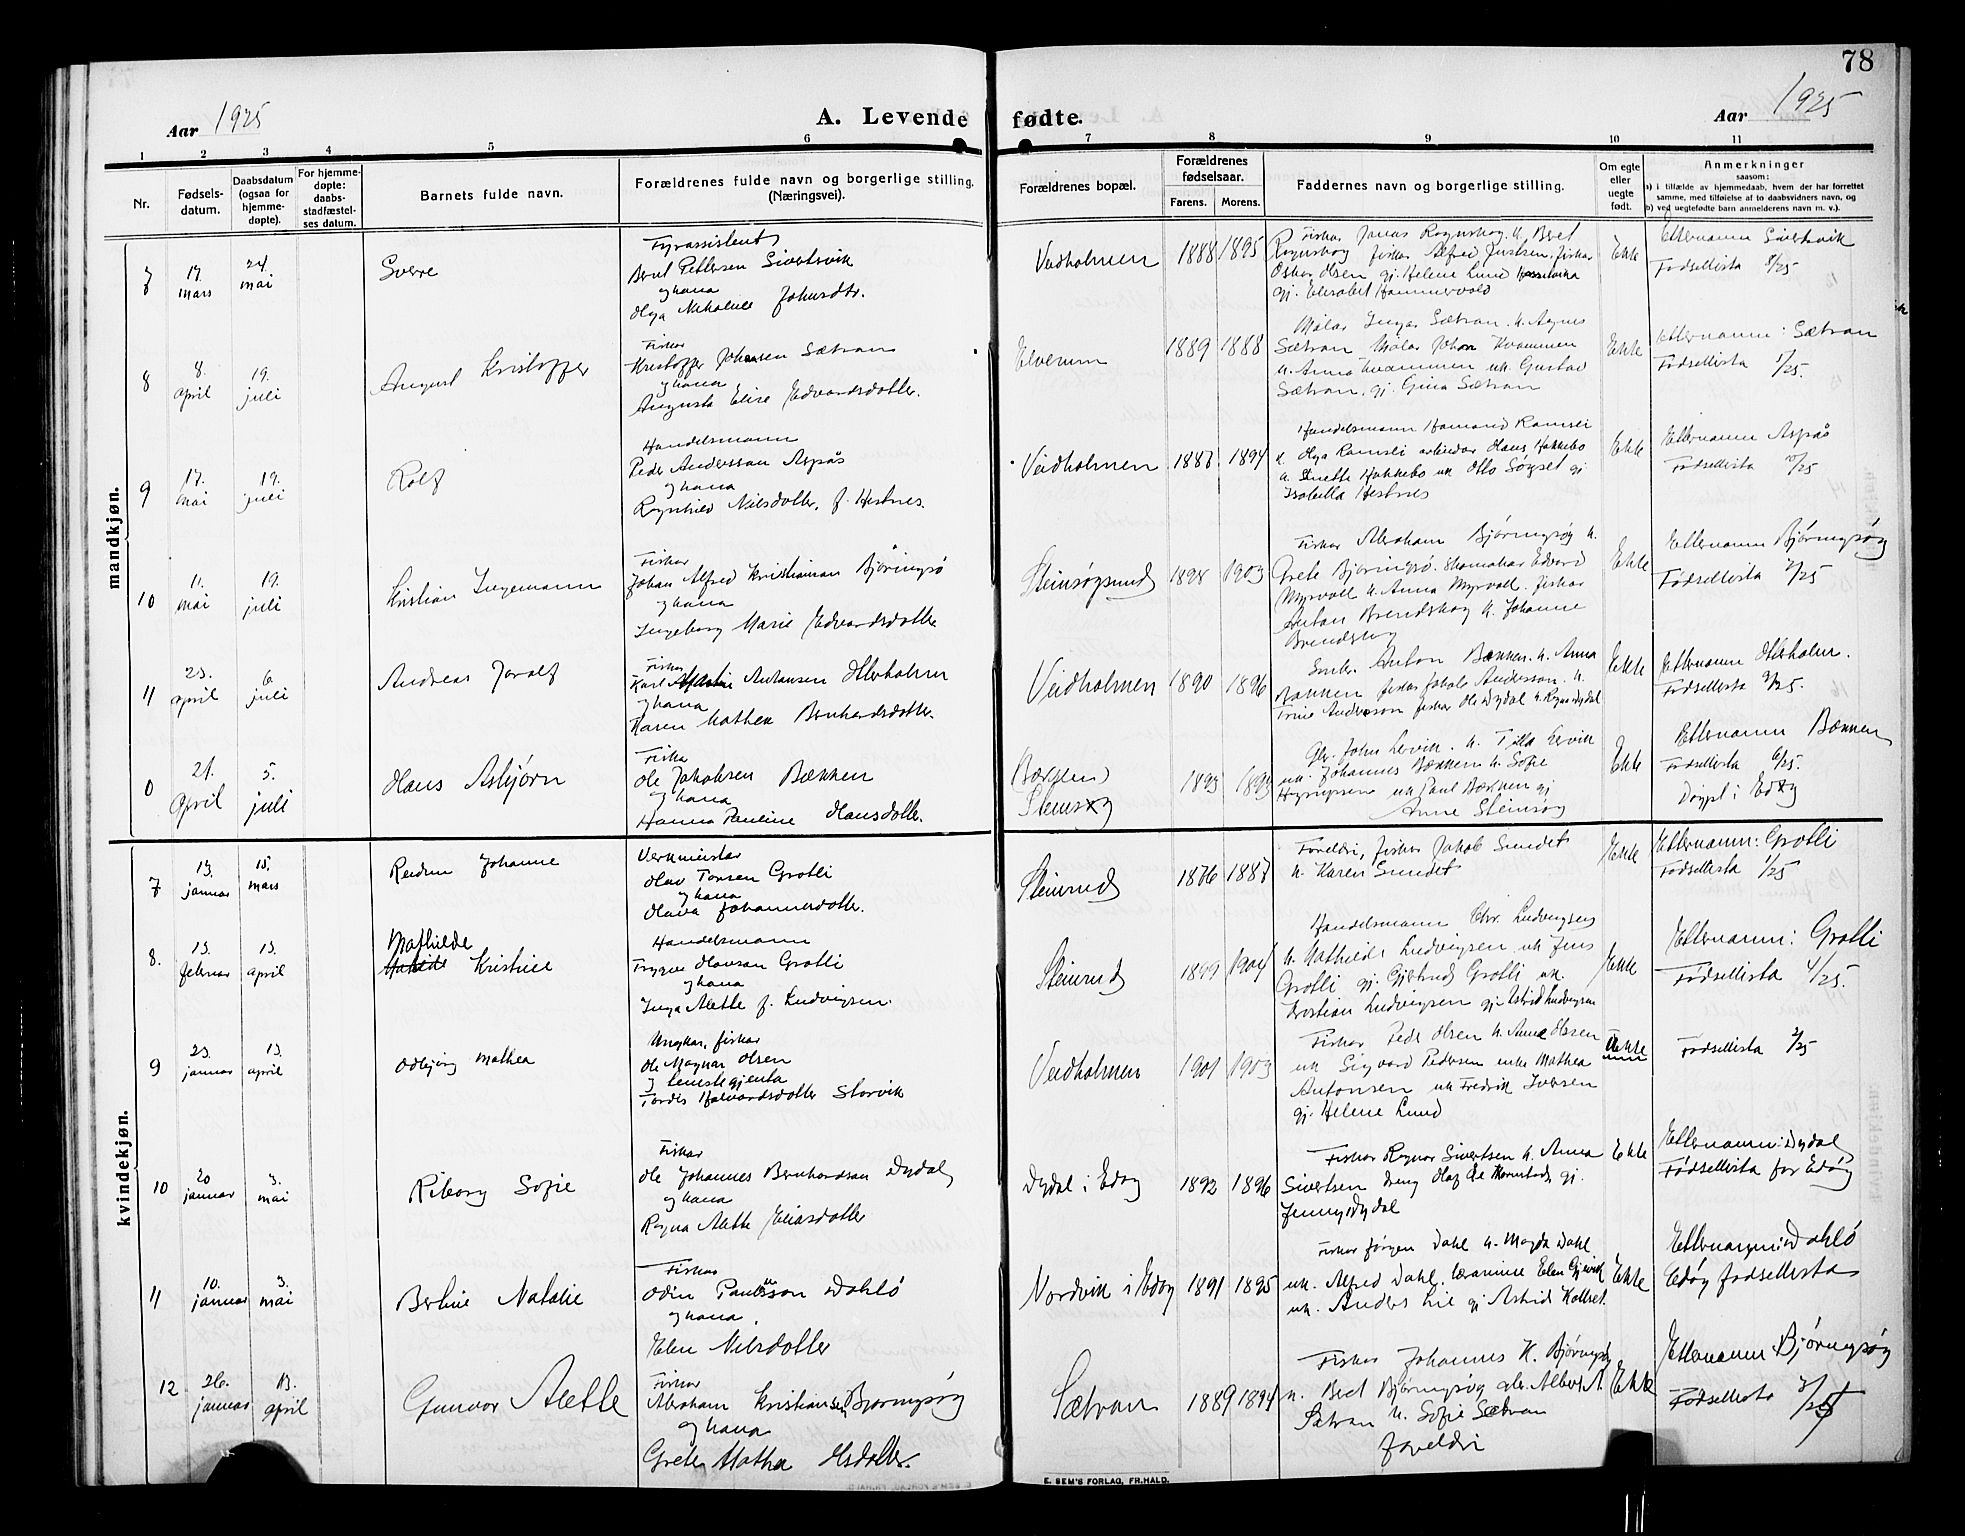 78
Aar 1925
A. Levende fødte.
Aar 1925
1 2 3 4 5 6 7 8 9 10 11
Nr.
Fødsels-
datum.
Daabsdatum
(ogsaa for
hjemme-
døpte).
For hjemme-
døpte:
daabs-
stadfæstel-
ses datum.
Barnets fulde navn.
Forældrenes fulde navn og borgerlige stilling.
(Næringsvei).
Forældrenes bopæl.
Forældrenes
fødselsaar.
Farens. Morens.
Faddernes navn og borgerlige stilling.
Om egte
eller
uegte
født.
Anmerkninger
saasom:
a) i tilfælde av hjemmedaab, hvem der har forrettet
samme, med tilføielse af to daabsvidners navn, og
b) ved uegtefødte barn anmelderens navn m. v.).
mandkjøn.
7
17. mars
24. mai
Sverre
Fyrassistent
Bernt Pettersen Sivertsvik
og kona
Olga Nikoline Johnsdtr.
Veidholmen
1888 1895
Fiskar Jonas Rognskog k. Beret
Rognskog fiskar Alfred Justsen, fiskar
Oskar Olsen gj. Helene Lund
gj. Elisabet Hammervold
Ekte
Etternamn Sivertsvik
Fødsellista 8/25
8
8. april
19. juli
August Kristoffer
Fiskar
Kristoffer Johansen Sætran
og kona
Augusta Elise Edvardsdotter.
1889 1888
Målar Ingar Sætran k. Agnes
Sætran Målar Johan Kvammen
k. Anna Kvammen uk Gustav
Sætran, gj. Gina Sætran
Ekte
Etternamn: Sætran
Fødsellista 1/25.
9
17. mai
19. juli
Rolf
Handelsmann
Peder Anderssen Aspås
og kona
Ragnhild Nilsdotter, f. Hestnes.
Veidholmen
1887 1894
Handelsmann Hamand Ramsli
k. Olga Ramsli arbeidar Hans Hakkebo
k. Anette Hakkebo uk Otto Søyset gj
Isabella Hestnes
Ekte
Etternamn Aspås
Fødsellista
10
11. mai
19. juli
Kristian Ingemann
Fiskar
Johan Alfred Kristiansen Bjøringsø
og kona
Ingeborg Marie Edvardsdotter
Steinsøysund
1898 1903
Fiskar Abraham Bjørngsøy k.
Grete Bjøringsø. Skomakar Edvard
Myrvoll k. Anna Myrvoll fiskar
Anton Brendskag k. Johanne
Brendskag
Ekte
Etternamn Bjørngsøy
Fødsellista
11
23. april
6 juli
Andreas Jorolf
Fiskar
Karl Antonsen Otterholm
og kona
Karen Mathea Bernhardsdotter.
Veidholmen
1890 1896
Snek. Anton Bækken k. Anna
Bækken fiskar Jakob Anderssen k.
Trine Anderssen fiskar Ole Dydal k. Ragna Dydal
Ekte
Etternamn Otterholm.
Fødsellista
0
21. april
5. juli
Hans Asbjørn
Fiskar
Ole Jakobsen Bækken
og kona
Hanna Pauline Hansdotter.
Steinsøy
1893 1893
Gbr. John Lervik. k. Tilla Lervik
uk. Johannes Bækken k. Sofie
uk Paul Bækken gj
Anne Steinsøy
Ekte
Etternamn Bækken
Fødsellista 6/25.
Døypt i Edøy
kvindekjøn.
7
13. januar
15. mars
Reidun Johanne
Verkmeistar
Olav Torsen Grotli
og kona
Olava Johannesdotter.
Steinsund
1876 1887
Foreldri, fiskar Jakob Sundet
k. Karen Sundet
Ekte
Etternamn: Grotli
Fødsellista 1/25
8.
13. februar
13. april
Mathilde Kristine
Handelsmann
Trygve Olavson Grotli
og kona
Inga Alette f. Ludvigsen.
Steinsund
1899 1904
Handelsmann Chr. Ludvigsen
k. Mathilde Ludvigsen uk Jens
Grotli gj. Gjertrud Grotli uk.
Kristian Ludvigsen gj Astrid Ludvigsen
Ekte
Etternamn: Grotli
Fødsellista 4/25.
9
23. januar
13. april
Odbjørg Mathea
Ungkar, fiskar
Ole Magnar Olsen
og tenestegjenta
Tordis Halvardsdotter Storvik
Veidholmen
1901 1903
Fiskar Peder Olsen k. Anne Olsen
uk Sigvard Pedersen enke Mathea
Antonsen uk Fredrik Iversen
gj. Helene Lund
Uekte
Fødsellista 2/25
10
20 januar
3. mai
Riborg Sofie
Fiskar
Ole Johannes Bernhardsen Dydal
og kona
Ragna Alette Eliasdotter
Dydal i Edøy
1892 1896
Fiskar Ragnar Sivertsen k. Anna
Sivertsen dreng Olaf gj.
Jenny Dydal
Ekte
Etternamn: Dydal
Fødsellista for Edøy
11
10. januar
3. mai
Berline Natalie
Fiskar
Odin Paulsson Dahlø
og kona
Elen Nilsdotter
Nordvik i Edøy
1891 1895
Fiskar Jørgen Dahl k. Magda Dahl
uk. Alfred Dahl. lærarinne Elen Gjervik
uk. Anders Lie gj Astrid Kallset.
Ekte
Etternamn: Dahlø
Edøy fødsellista
12
26. januar
13. april
Gunvor Alette
Fiskar
Abraham Kristiansen Bjørngsøy
og kona
Grete Mathea Olsdotter.
Sætran
1889 1894
Fiskar Johannes K. Bjørngsøy
k. Beret Bjørngsøy gbr. Albert A.
Sætran k. Sofie Sætran
foreldri
Ekte
Etternamn: Bjørngsøy
Fødsellista 3/25
E. SEM'S FORLAG, FR.HALD.